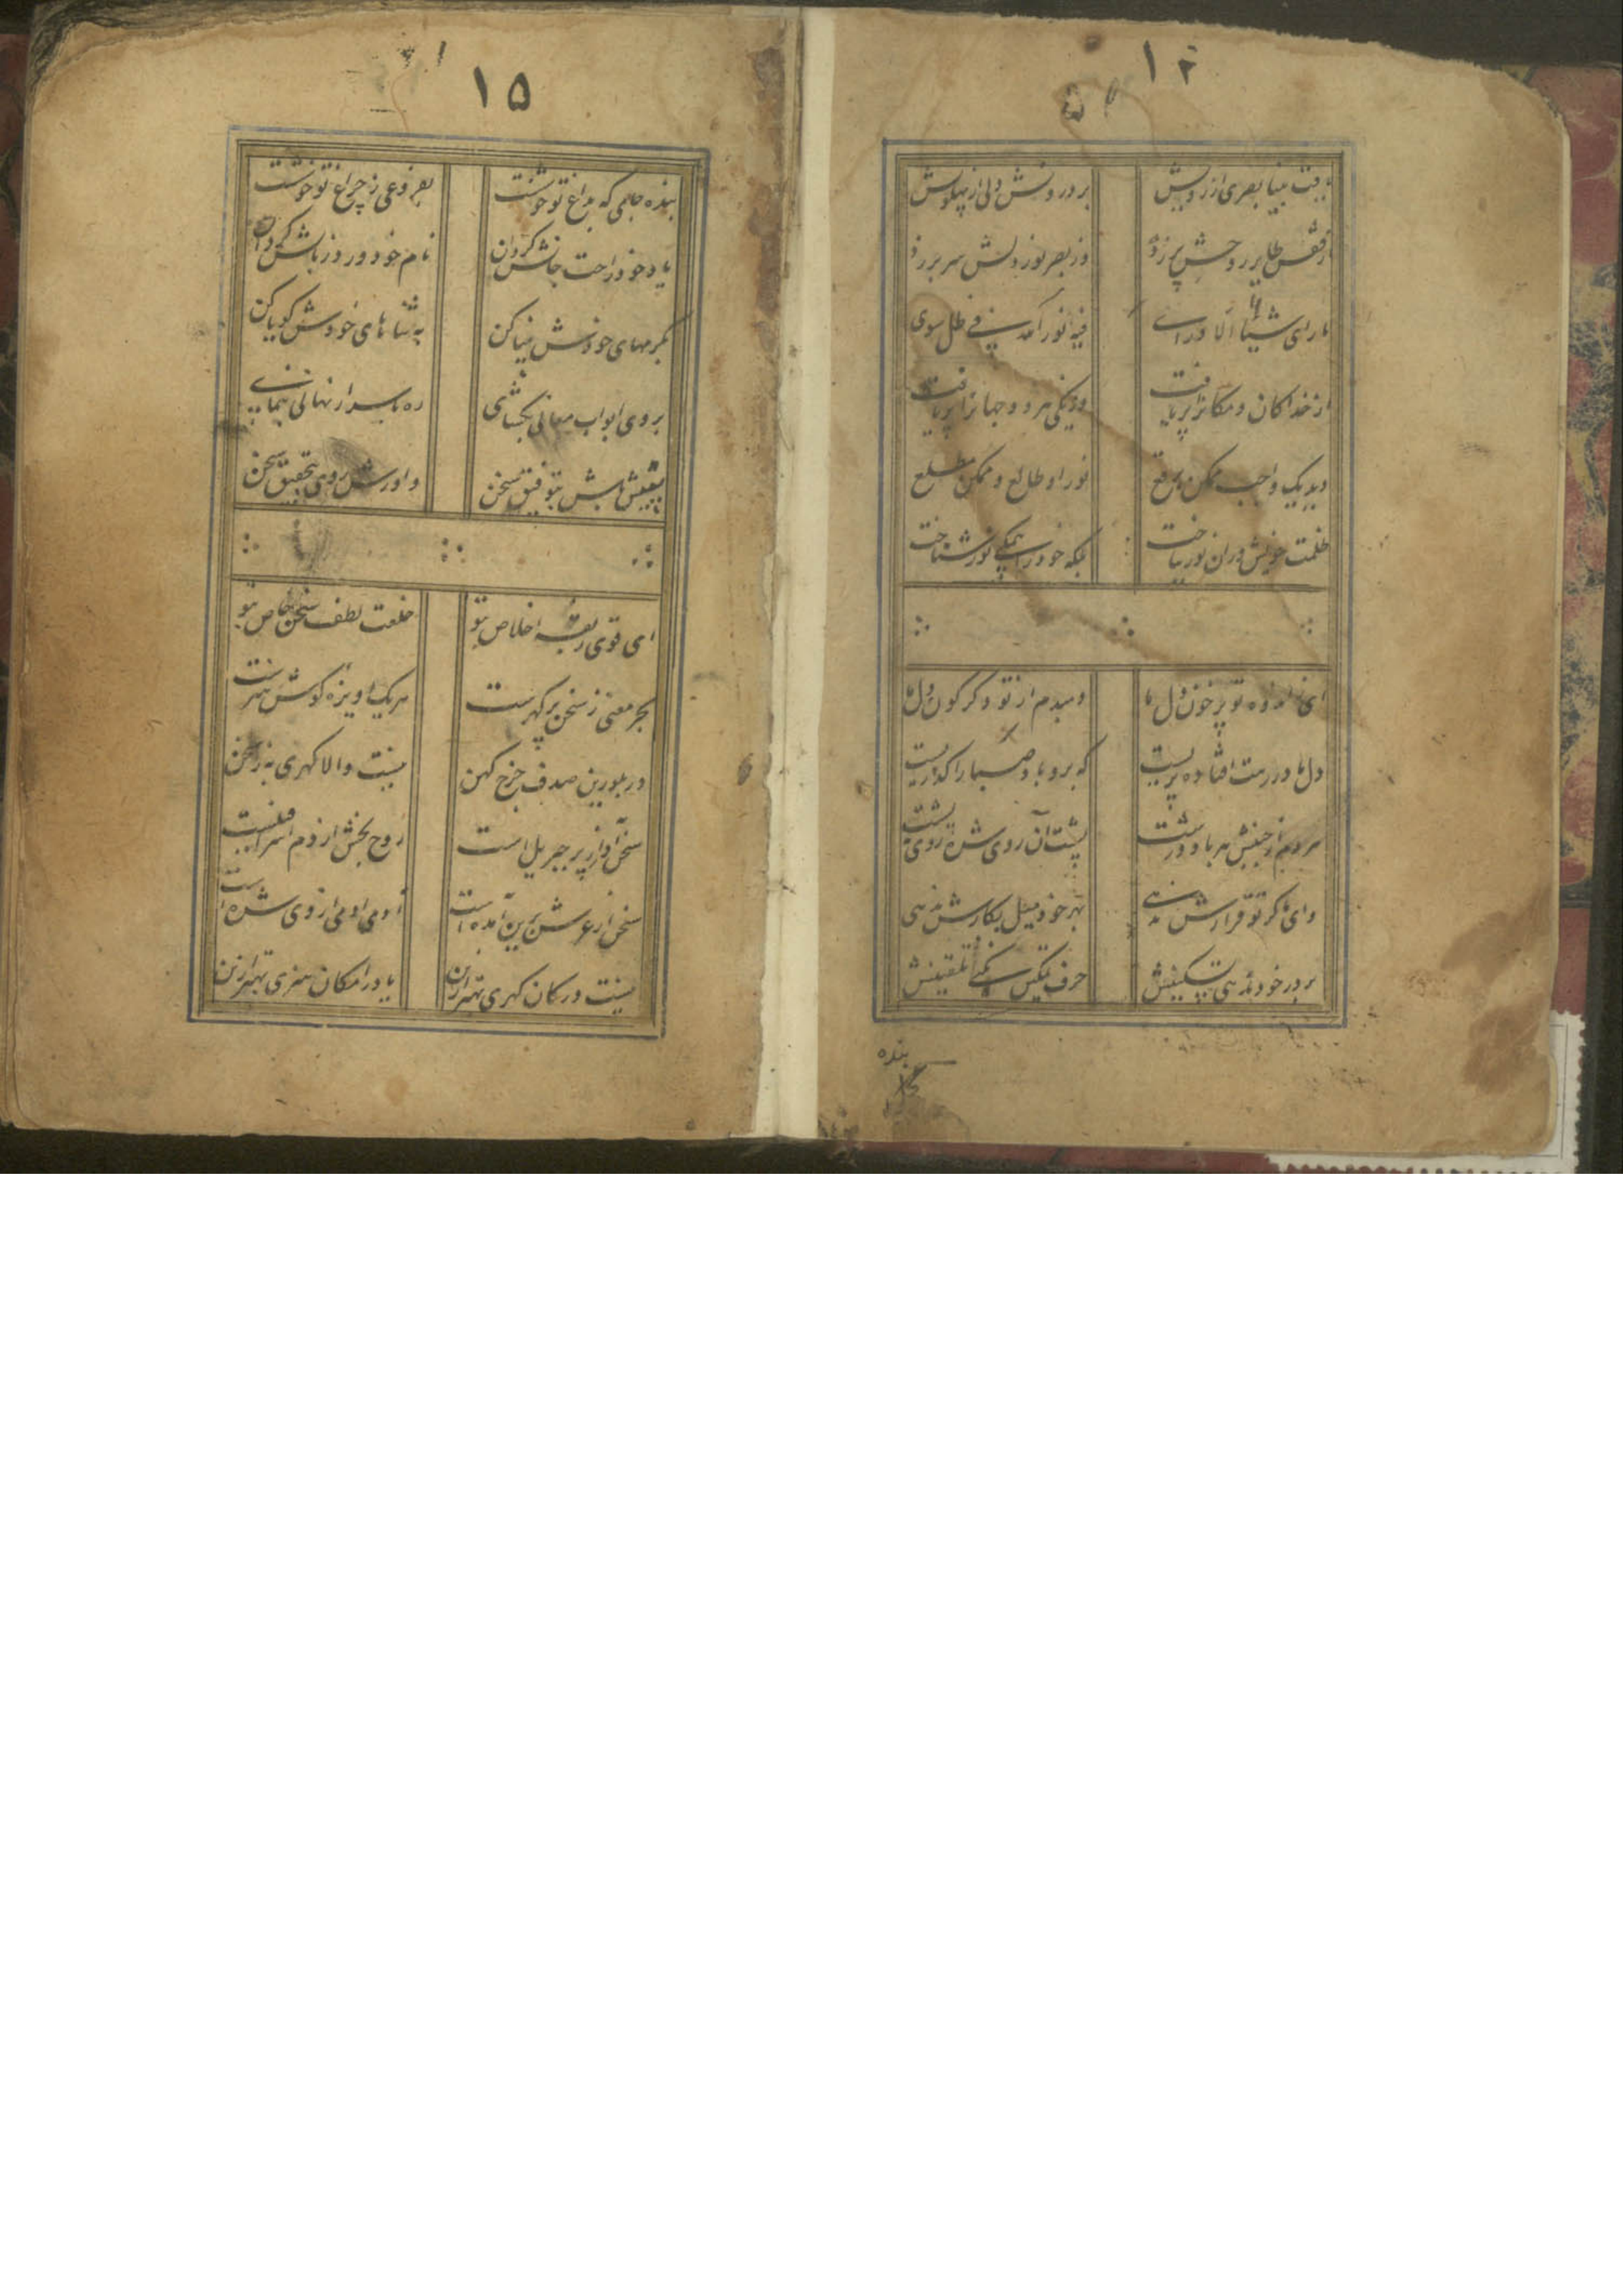 ۱۴
یافت بینا بصری از رویش
بر درونش دلی از پهلویش
از قفس طایر روحش پر زد
وز بصر نور دلش سر بر زد
ما رای شیئا الا ورای
فیه نور احد فی ظل سوی
از خدا کان و مکانرا پر یافت
وز یکی هر دو جهانرا پر یافت
دید یک واجب و ممکن برقع
نور او طالع و ممکن مطلع
ظلمت خویش در آن نور بباخت
بلکه خود را همگی نور شناخت
ای ز اندوه تو پر خون دل ما
دمبدم از تو دگرگون دل ما
دل ما در رهت افتاده پریست
که برو باد صبا را گذریست
هر دم از جنبش هر باد درشت
پشت آن روی شده روی پشت
وای اگر تو قرارش ندهی
بهر خود میل بکارش ندهی
بر در خود ندهی تسکینش
حرف تمکین نکنی تلقینش
بنده
۱۵
بنده جامی که بداغ تو خوشست
بفروغی ز چراغ تو خوشست
یاد خود راحت جانش گردان
نام خود ورد زبانش گردان
بکرمهای خودش بینا کن
به ثناهای خودش گویا کن
بروی ابواب معانی بگشای
ره باسرار نهانی بنمای
باش بتوفیق سخن
داورش روی بتحقیق سخن
ای قوی ربقه اخلاص بتو
خلعت لطف سخن خاص بتو
بحر معنی ز سخن پر گهرست
هر یک آویزه گوش هنرست
در بلورین صدف چرخ کهن
نیست والا گهری به ز سخن
سخن آواز پر جبریل است
روح بخش از دم اسرافیلست
سخن از عرش برین آمده است
آدمی آدمی از وی شده است
نیست در کان گهری بهتر ازین
یا در امکان هنری بهتر ازین